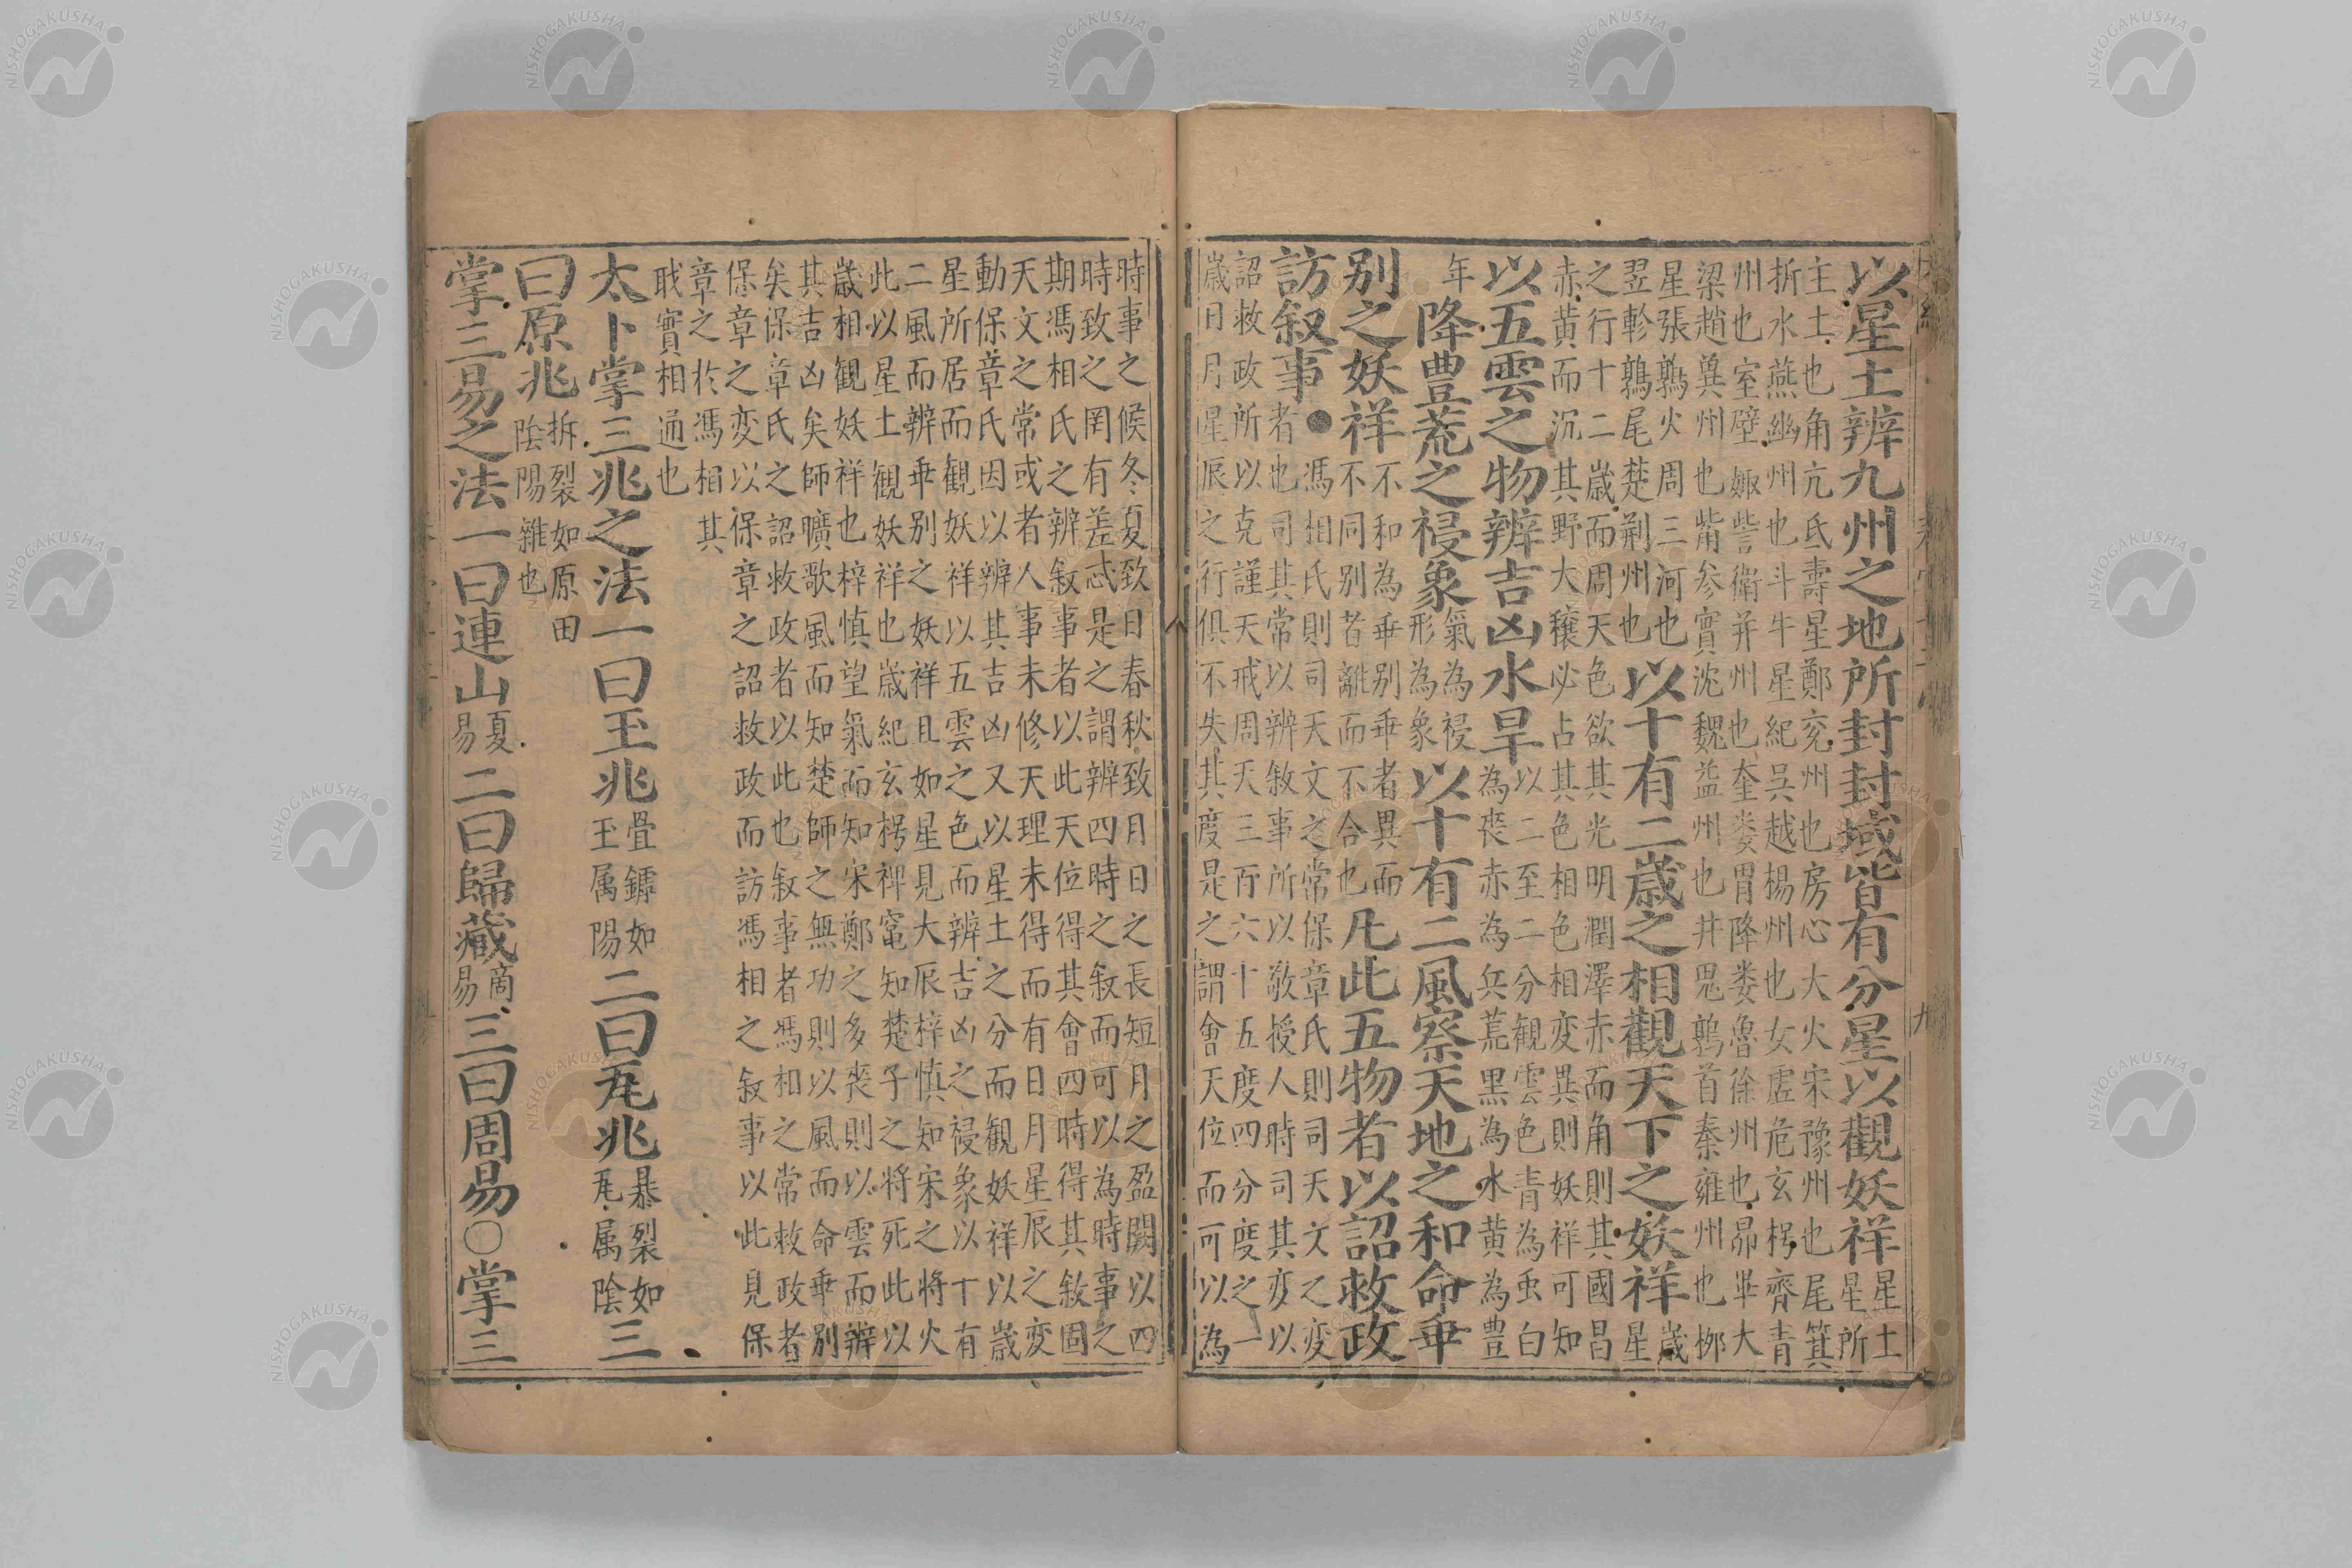 以星土辨九州之地所封封域皆有分星以觀妖祥星土星所
主土也角亢氐壽星鄭兖州也房心大火宋豫州也尾箕
折水燕幽州也斗牛星紀呉越楊州也女虚危玄枵齊青
州也室壁娵訾衛并州也奎娄胃降娄魯徐州也昴畢大
梁趙冀州也觜参實沈魏益州也井鬼鶉首秦雍州也栁
星張鶉火周三河也
翌軫鶉尾楚荆州也以十有二歳之相觀天下之妖祥歳星
之行十二歳而周天色欲其光明潤澤赤而角則其國昌
赤黄而沉其野大穣必占其色相色相変異則妖祥可知
以五雲之物辨吉凶水旱以二至二分観雲色青為虫白為䘮赤為兵荒黒為水黄為豊
年降豊荒之祲象氣為祲形為象以十有二風察天地之和命乖
别之妖祥不和為乖别乖者異而不同别者離而不合也凡此五物者以詔救政
訪叙事●馮相氏則司天文之常保章氏則司天文之変
者也司其常以辨敘事所以敬授人時司其変以
詔救政所以克謹天戒周天三百六十五度四分度之一
歳日月星辰之行俱不失其度是之謂會天位而可以為
時事之候冬夏致日春秋致月日之長短月之盈闕以四
時致之罔有差忒是之謂辨四時之敘而可以為時事之
期馮相氏之辨敘事者以此天位得其會四時得其敘啚
天文之常或者人事未修天理未得而有日月星辰之変
動保章氏因以辨其吉凶又以星土之分而観妖祥以歳
星所居而観妖祥以五雲之色而辨吉凶之祲象以十有
二風而辨乖别之妖祥且如星見大辰梓慎知宋之将火
此以星土観妖祥也歳紀玄枵禆竃知楚子之将死此以
歳相観妖祥也梓慎望氣而知宋鄭之多䘮則以雲而辨
其吉凶矣師曠歌風而知楚師之無功則以風而命乖别
矣保章氏之詔救政者以此也敘事者馮相之常救政者
保章之変以保章之詔救政而訪馮相之敘事以此見保
章之於馮相其
戢實相通也
太卜掌三兆之法一曰玉兆疊鏬如玉属陽二曰瓦兆暴裂如瓦属陰三
曰原兆拆裂如原田陰陽雜也
掌三易之法一曰連山夏易二曰歸藏商易三曰周易○掌三